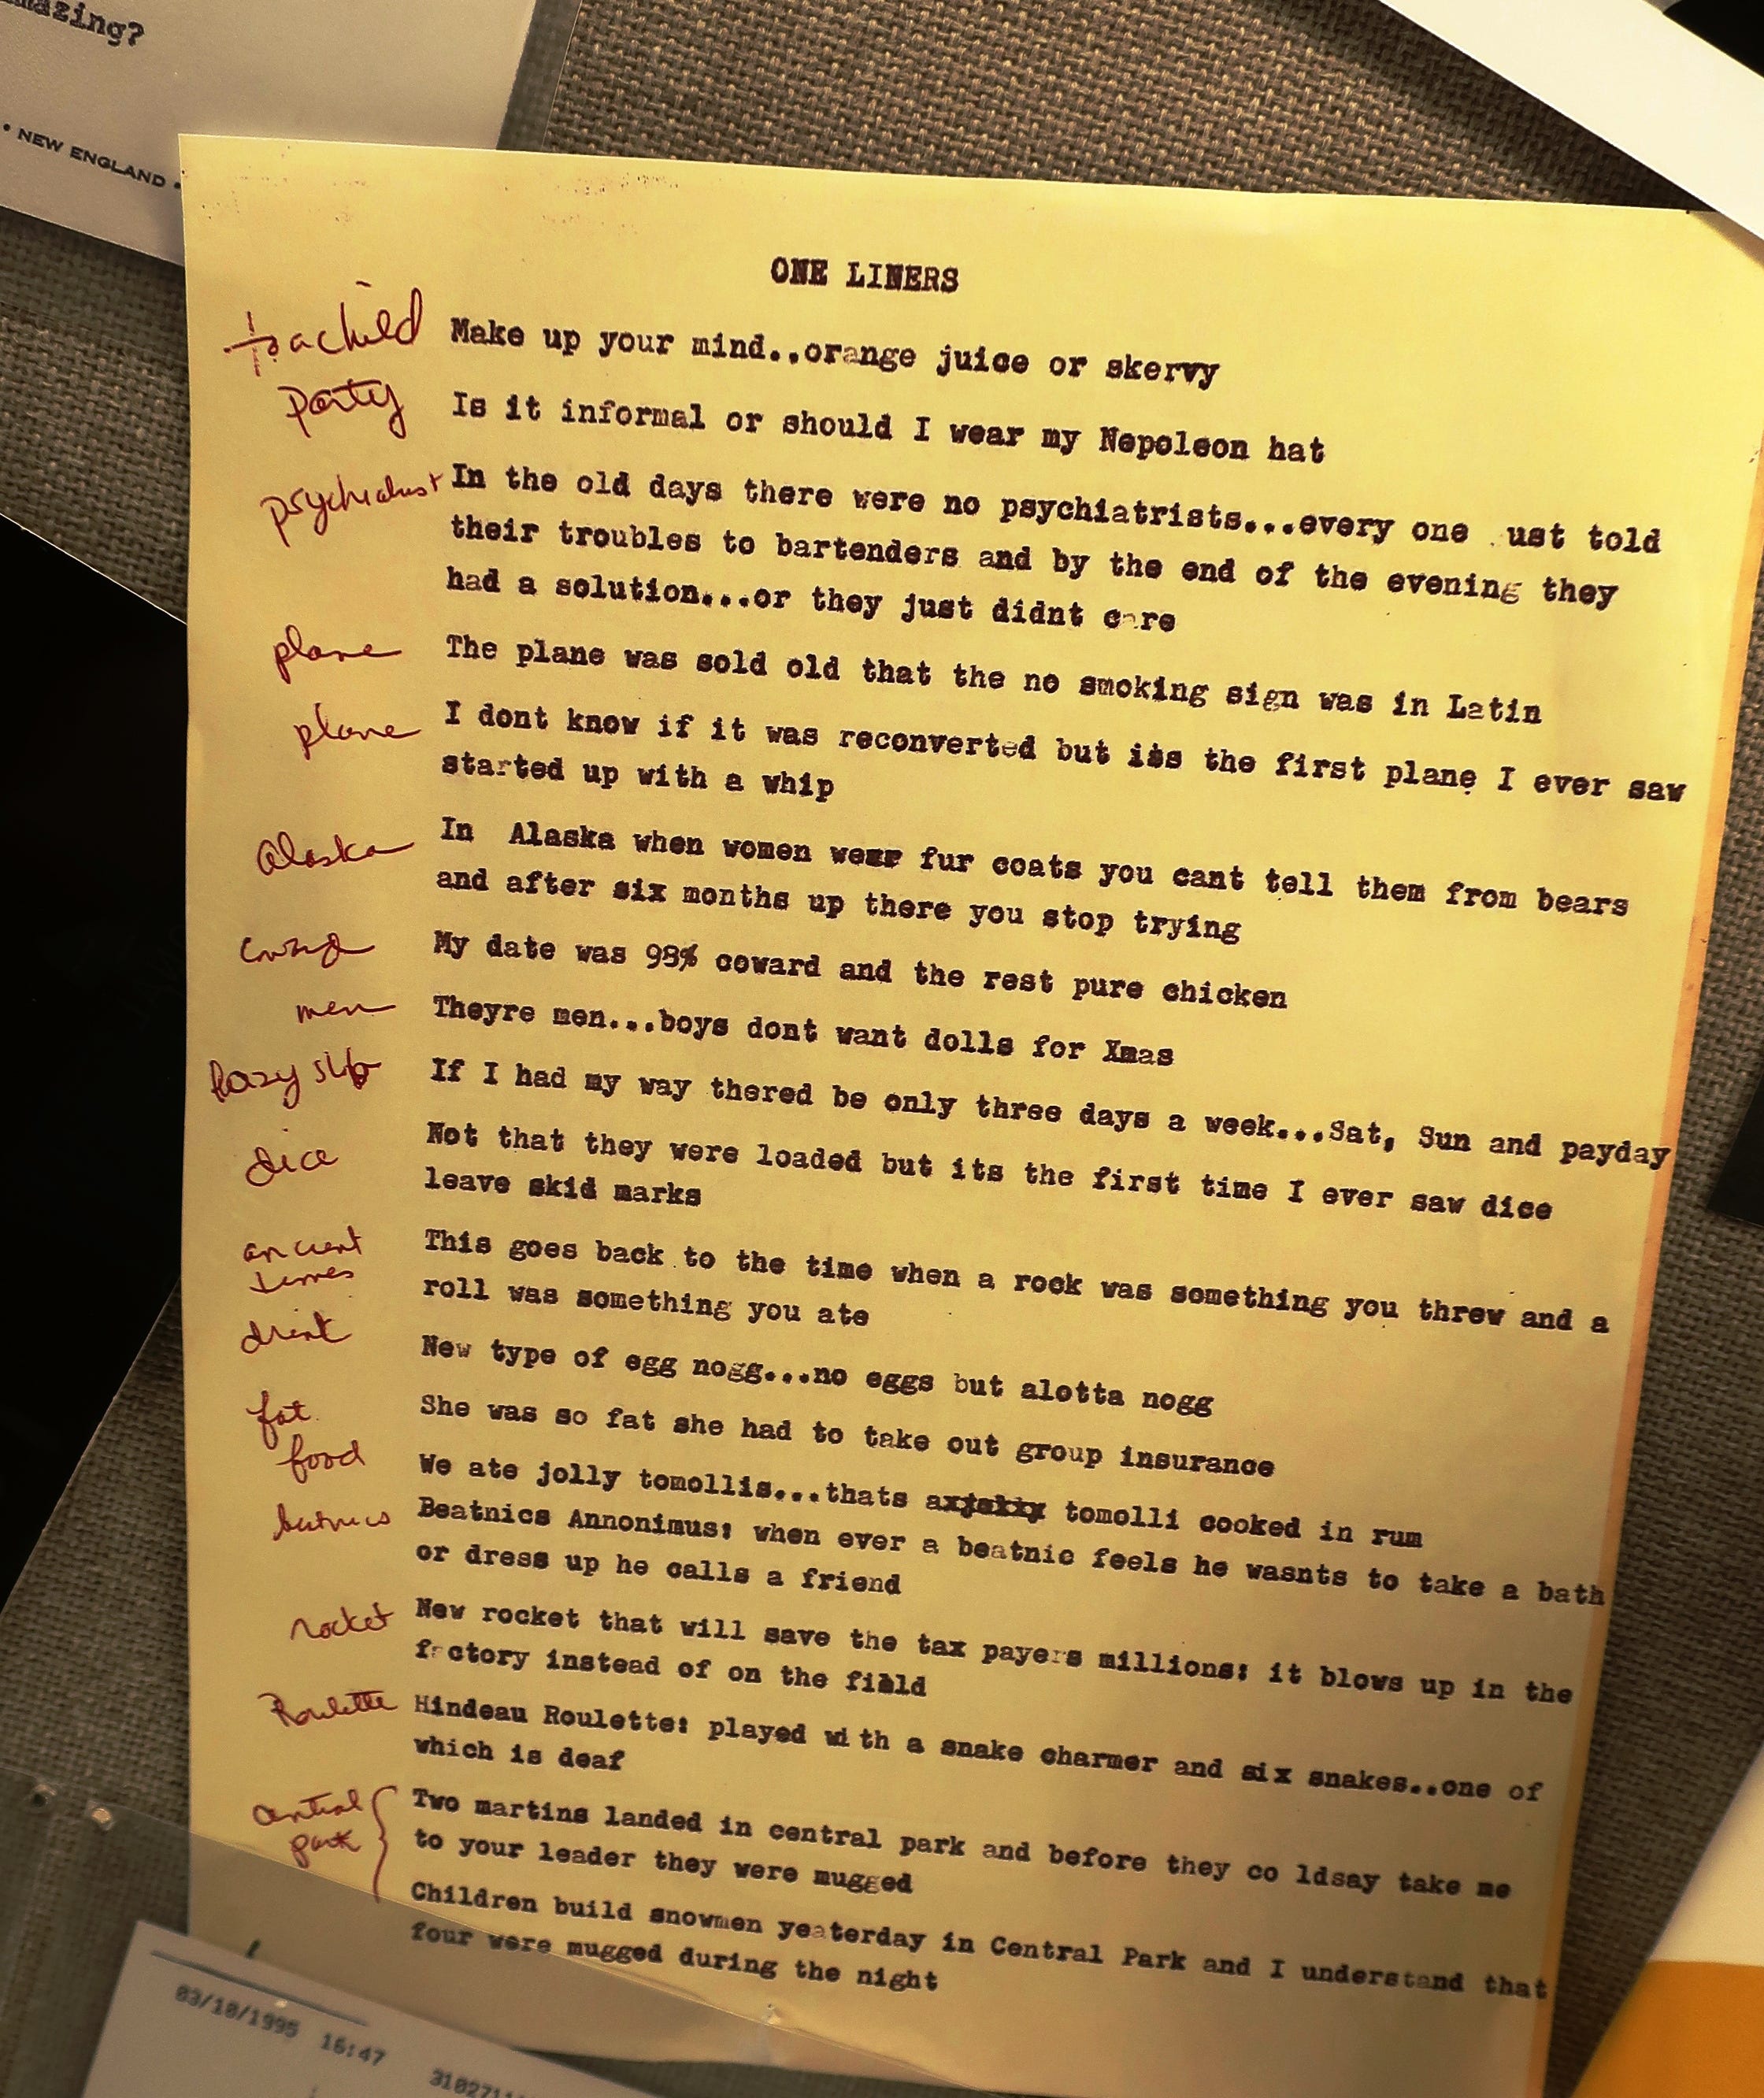 mazing?
• NEW ENGLAND •
ONE LINERS
to a child Make up your mind..orange juice or skervy
party Is it informal or should I wear my Nepoleon hat
psychiatrist In the old days there were no psychiatrists...every one ust told
their troubles to bartenders and by the end of the evening they
had a solution...or they just didnt care
plane The plane was sold old that the no smoking sign was in Latin
plane I dont know if it was reconverted but its the first plane I ever saw
started up with a whip
Alaska In Alaska when women wear fur coats you cant tell them from bears
and after six months up there you stop trying
coward My date was 98% coward and the rest pure chicken
men Theyre men...boys dont want dolls for Xmas
lazy slob If I had my way thered be only three days a week...Sat, Sun and payday
dice Not that they were loaded but its the first time I ever saw dice
leave skid marks
ancient This goes back to the time when a rock was something you threw and a
times roll was something you ate
drink New type of egg nogg...no eggs but alotta nogg
fat She was so fat she had to take out group insurance
food We ate jolly tomollis...thats a tomolli cooked in rum
beatnics Beatnics Annonimus: when ever a beatnic feels he wasnts to take a bath
or dress up he calls a friend
rocket New rocket that will save the tax payers millions: it blows up in the
factory instead of on the fiald
Roulette Hindeau Roulette: played with a snake charmer and six snakes..one of
which is deaf
central Two martins landed in central park and before they co ldsay take me
park to your leader they were mugged
Children build snowmen yeaterday in Central Park and I understand that
four were mugged during the night
03/10/1995 16:47 3102711